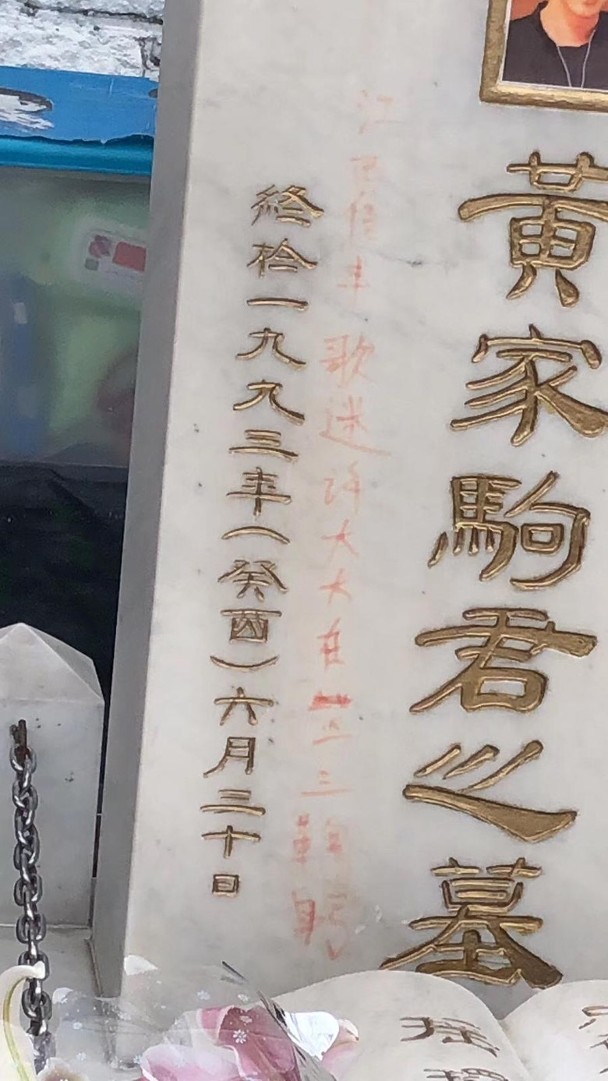 黃家駒君之墓
江西信丰歌迷许大大在 三鞠躬
終於一九九三年(癸酉)六月三十日